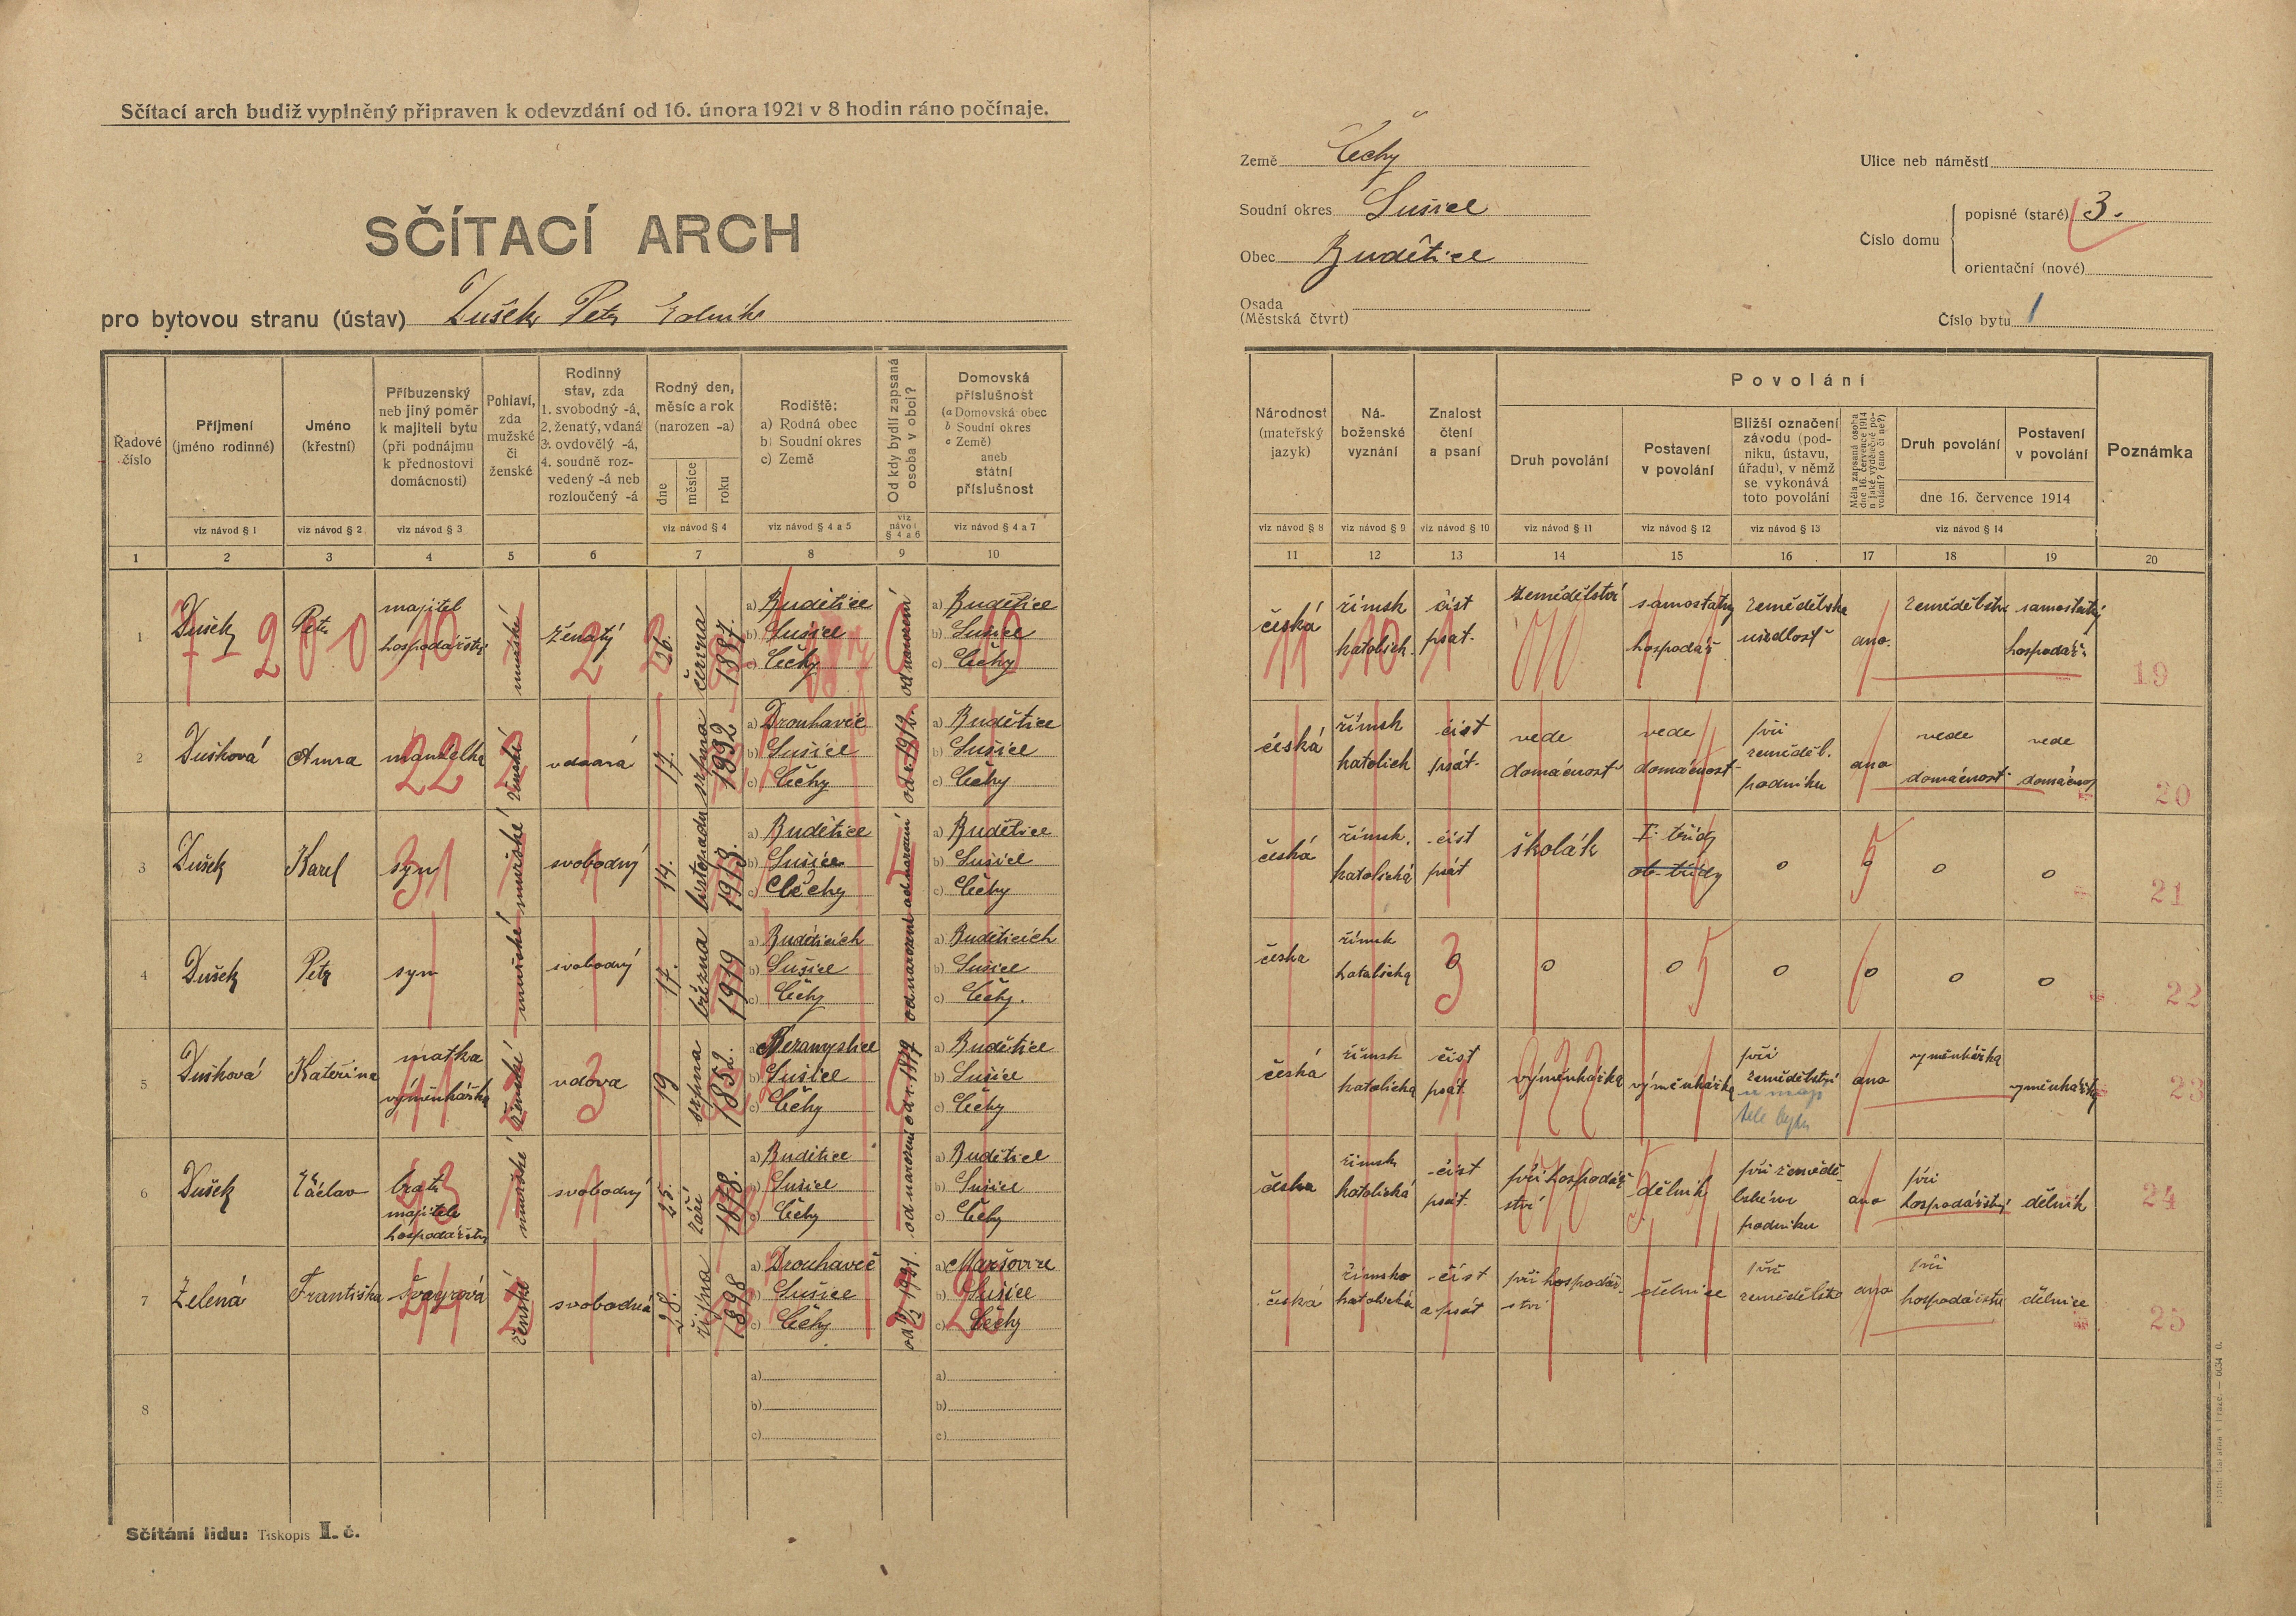 Sčítací arch budiž vyplněný připraven k odevzdání od 16. února 1921 v 8 hodin ráno počínaje.
SČÍTACÍ ARCH
pro bytovou stranu (ústav) Dušek Petr
Země Čechy
Soudní okres Sušice
Obec Budětice
Osada
(Městská čtvrt)
Ulice neb náměstí
Číslo domu
popisné (staré) 3.
orientační (nové)
Číslo bytu 1
Řadové číslo
Příjmení (jméno rodinné)
Jméno (křestní)
Příbuzenský neb jiný poměr k majiteli bytu (při podnájmu k přednostovi domácnosti)
Pohlaví, zda mužské či ženské
Rodinný stav, zda 1. svobodný -á, 2. ženatý, vdaná 3. ovdovělý -á, 4. soudně rozvedený -á neb rozloučený -á
Rodný den, měsíc a rok (narozen -a)
dne měsíce roku
Rodiště: a) Rodná obec b) Soudní okres c) Země
Od kdy bydlí zapsaná osoba v obci?
Domovská příslušnost (a Domovská obec b Soudní okres c Země) aneb státní příslušnost
Národnost (mateřský jazyk)
Náboženské vyznání
Znalost čtení a psaní
Povolání
Druh povolání
Postavení v povolání
Bližší označení závodu (podniku, ústavu, úřadu), v němž se vykonává toto povolání
Měla zapsaná osoba dne 16. července 1914 nějaké výdělečné povolání? (ano či ne?)
Druh povolání
Postavení v povolání
dne 16. července 1914
Poznámka
viz návod § 1 viz návod § 2 viz návod § 3 viz návod § 4 viz návod § 4 a 5 viz návod § 4 a 6 viz návod § 4 a 7 viz návod § 8 viz návod § 9 viz návod § 10 viz návod § 11 viz návod § 12 viz návod § 13 viz návod § 14
1 2 3 4 5 6 7 8 9 10 11 12 13 14 15 16 17 18 19 20
1 Dušek Petr majitel hospodářství mužské ženatý 26. června 1887. a) Budětice b) Sušice c) Čechy od narození a) Budětice b) Sušice c) Čechy česká římsk katolick. číst psat. zemědělství samostatný hospodář zemědělska usedlosť ano. zemědělství samostatný hospodář. 19
2 Dušková Anna manželka ženské vdaná 17. srpna 1892 a) Drouhavec b) Sušice c) Čechy od r. 1912. a) Budětice b) Sušice c) Čechy česká římsk katolick číst psát. vede domácnost vede domácnost při zeměděl. podniku ano vede domácnost vede domácnos 20
3 Dušek Karel syn mužské svobodný 14. listopadu 1913. a) Budětice b) Sušice c) Čechy od narození a) Budětice b) Sušice c) Čechy česká římsk. katolická číst psát školák I. třídy ob. třídy o o o o 21
4 Dušek Petr syn mužské svobodný 17. března 1919 a) Buděticích b) Sušice c) Čechy od narození a) Buděticích b) Sušice c) Čechy. česka římsk katolická o o o o o o o 22
5 Dušková Kateřina matka výměnkářka ženské vdova 19 srpna 1852. a) Nezamyslice b) Sušice c) Čechy od r. 1877 a) Budětice b) Sušice c) Čechy česká římsk katolická číst psát. výměnkářka výměnkářka při zemědělství u maji tele bytu ano výměnkářka výměnkářka 23
6 Dušek Václav bratr majitele hospodářství mužské svobodný 25. září 1878. a) Budětice b) Sušice c) Čechy od narození a) Budětice b) Sušice c) Čechy česka římsk katolická číst psát. při hospodářství dělník při zemědělském podniku ano při hospodářství dělník 24
7 Zelená Františka švagrová ženské svobodná 28. října 1898 a) Drouhavec b) Sušice c) Čechy 1921. a) Maršovice b) Sušice c) Čechy česká římsko katolická číst a psát při hospodářství dělnice při zemědělstv ano při hospodářstu dělnice 25
8 a) b) c) a) b) c)
Sčítání lidu: Tiskopis II. č.